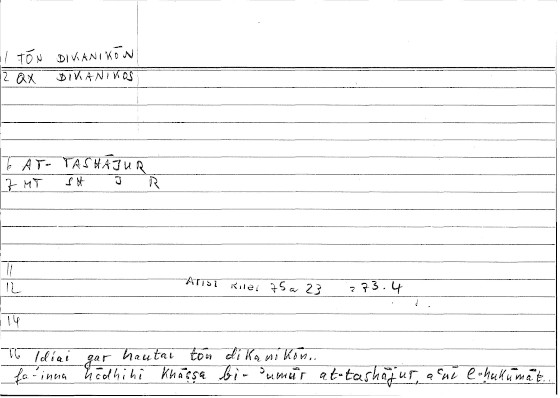 1 TŌN DIKANIKŌN
2 QX DIKANIKOS
6 AT- TASHĀJUR
7 MT SH J R
11
12 Arist Rhet 75a 23 = 73.4
14
16 Idiai gar hautai tōn dikanikōn..
fa-'inna hādhihi khāṣṣa bi-'umūr at-tashājur, a'nī l-ḥukūmāt..